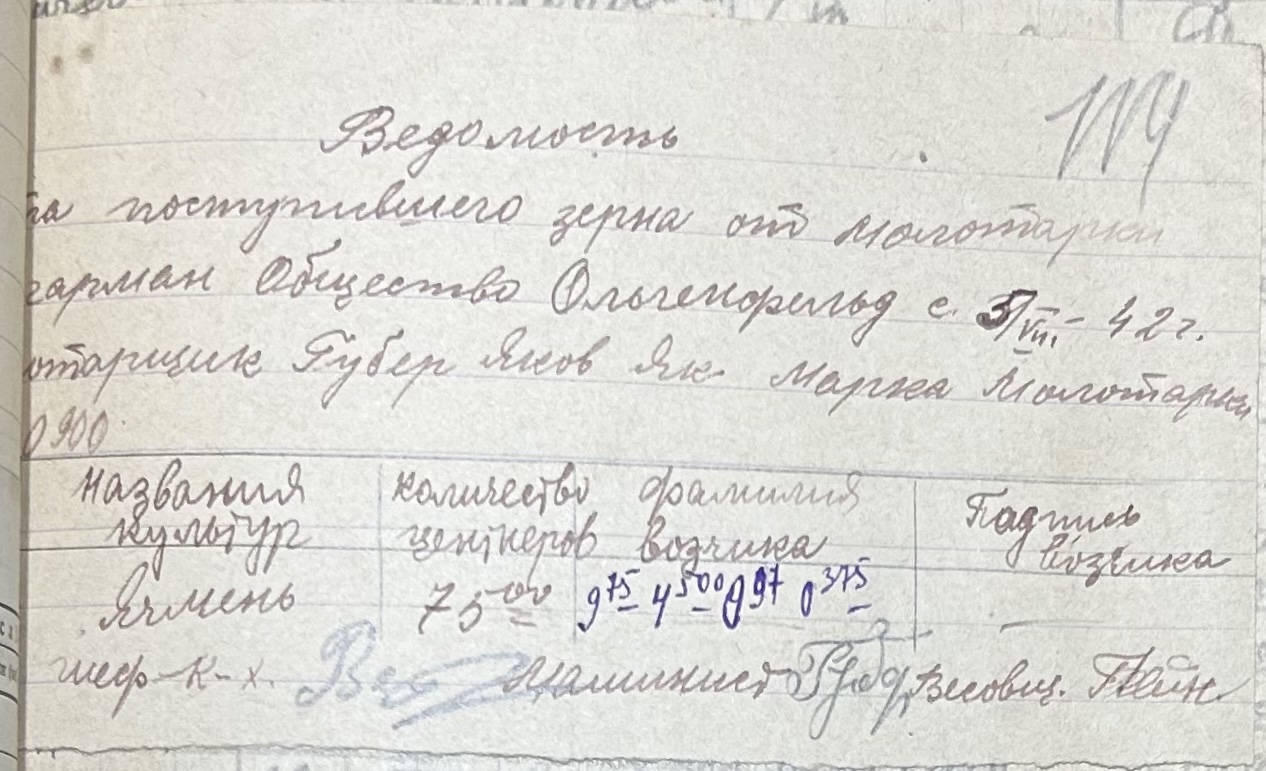 Ведомость
та поступившего зерна от молотарки
гарман Общество Ольгенфельд с. 5/VIII - 42 г.
отарщик Губер Яков Як. Марка Молотарки
0900
Названия культур
количество центнеров
фамилия возчика
Падпись возчика
Ячмень 75 00 9 75 4 500 0 97 0 375 —
шеф-к-х. Машинист Губер Весовщ.